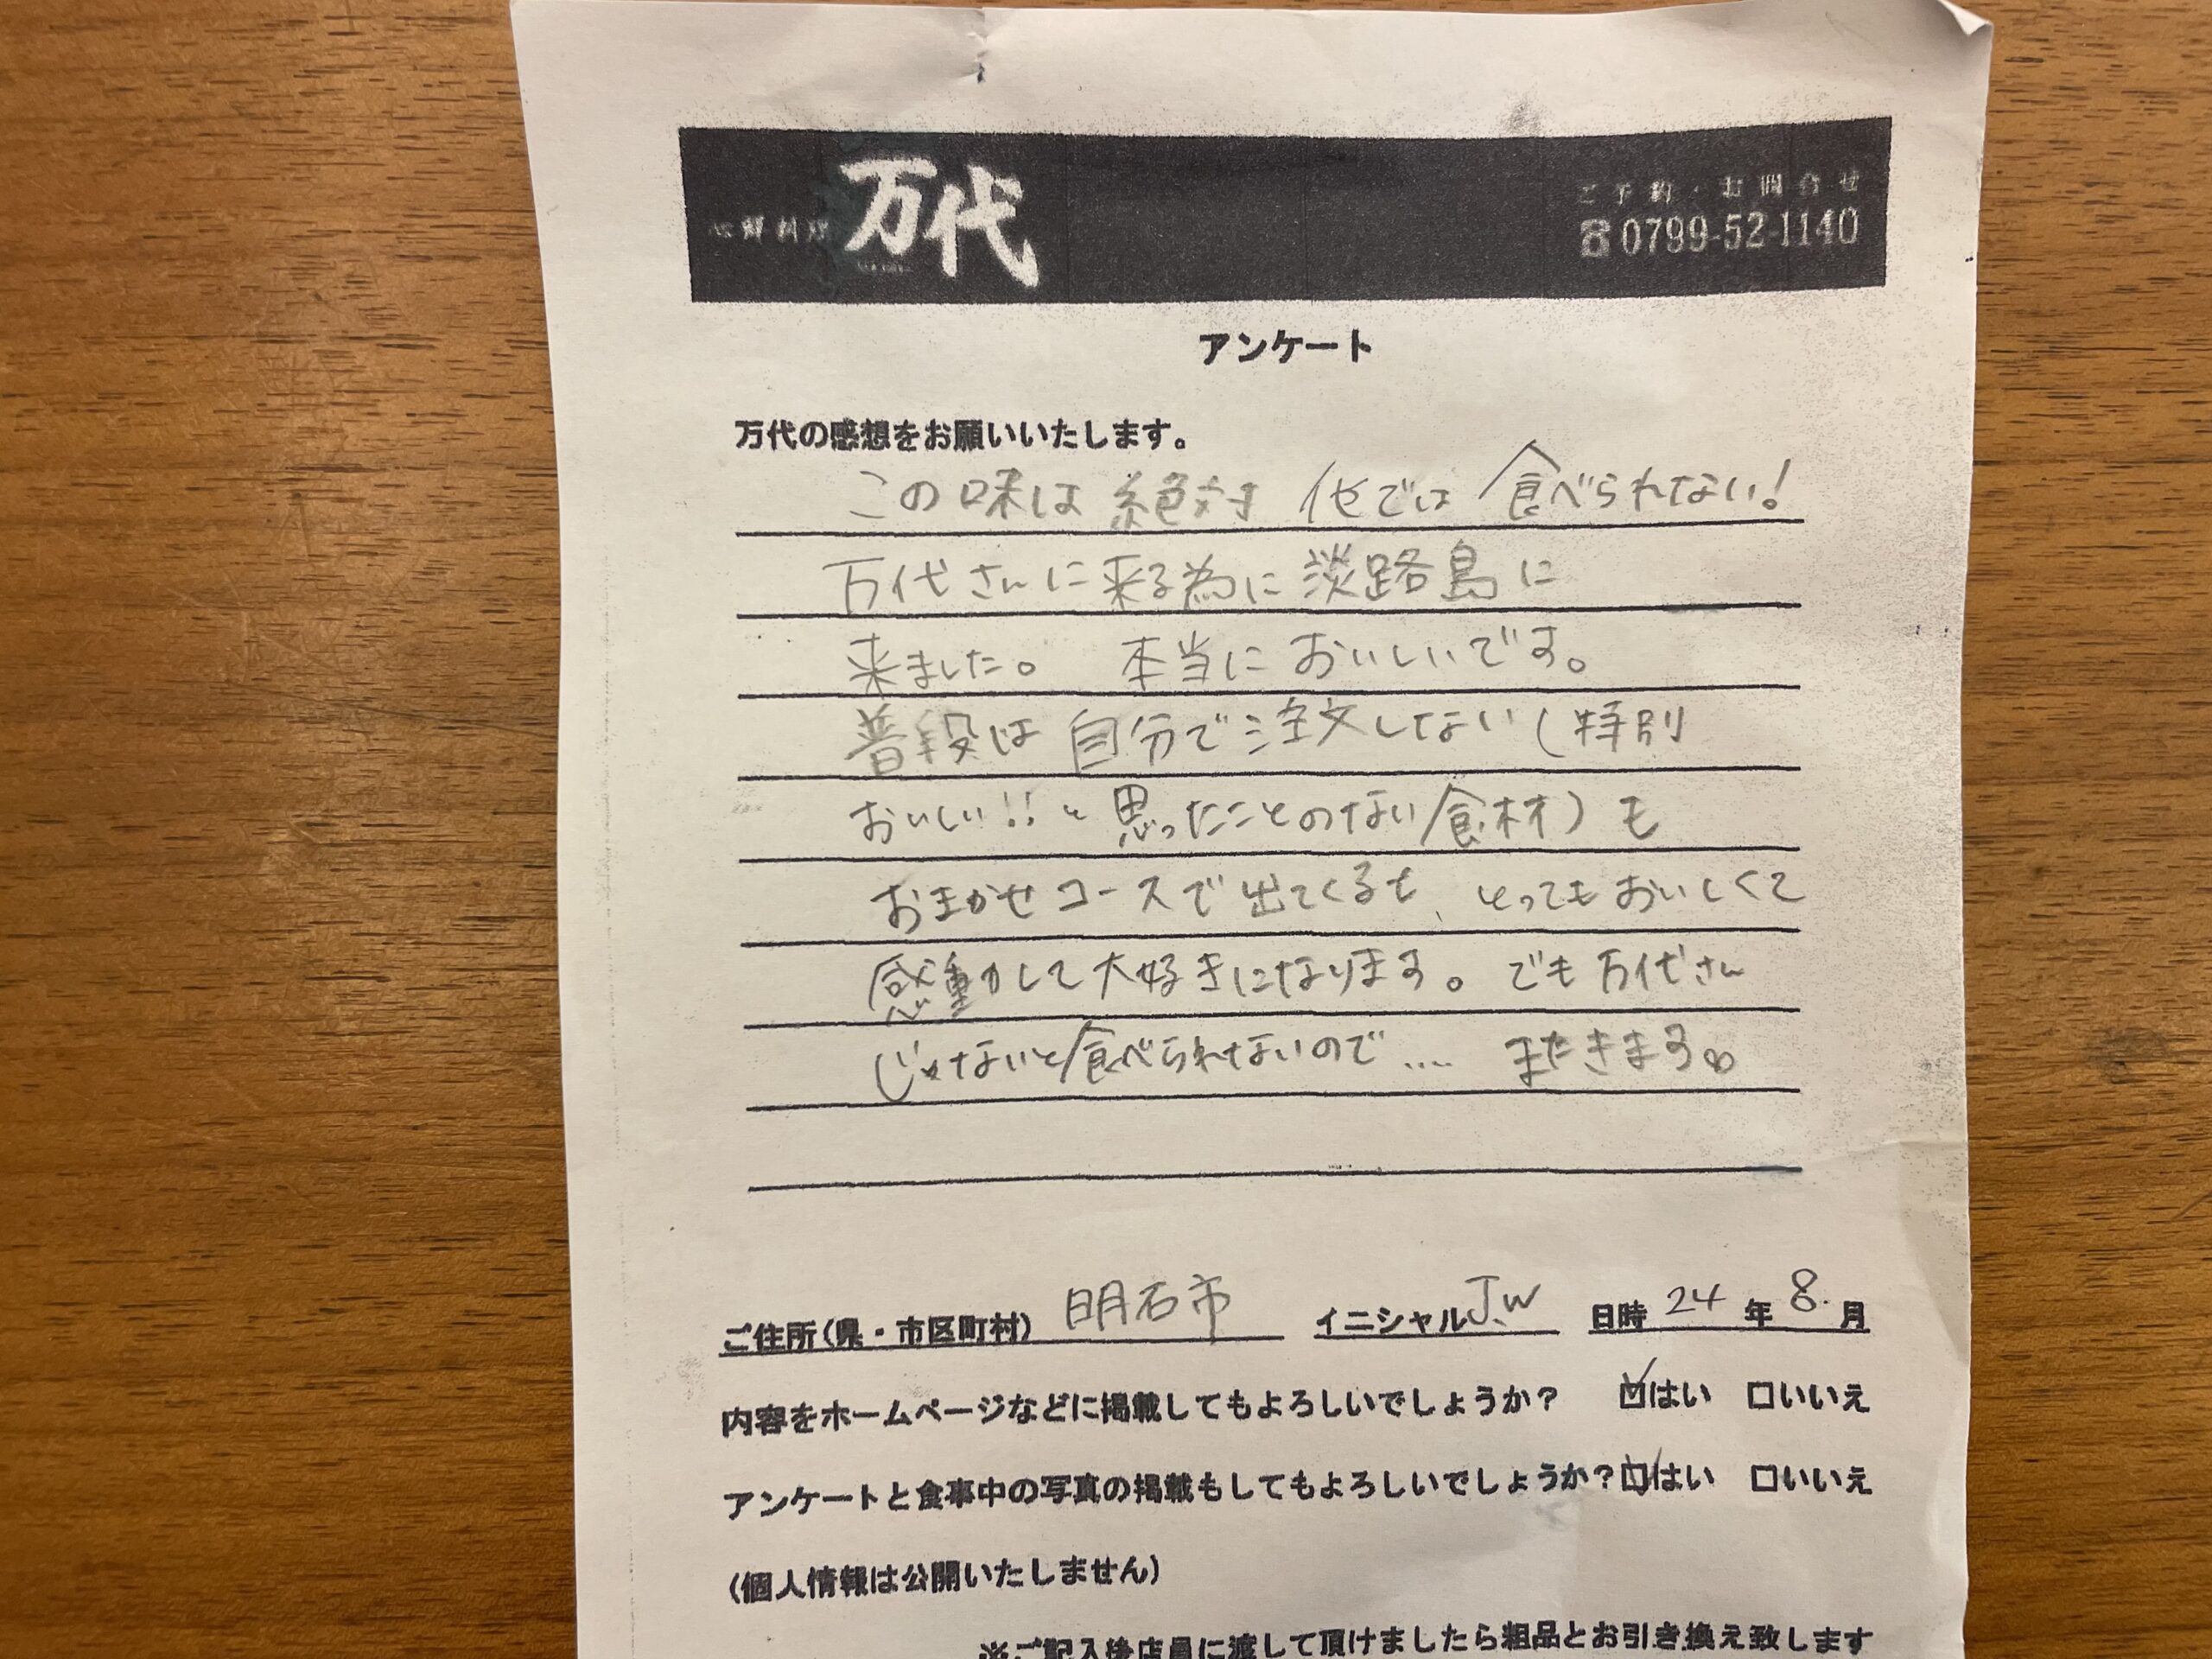 心鮮料理 万代
ご予約・お問合せ
☎0799-52-1140
アンケート
万代の感想をお願いいたします。
この味は絶対 他では食べられない!
万代さんに来る為に淡路島に
来ました。 本当においしいです。
普段は自分で注文しない(特別
おいしい!!と思ったことのない食材)も
おまかせコースで出てくると、とってもおいしくて
感動して大好きになります。でも万代さん
じゃないと食べられないので.... またきます。
ご住所(県・市区町村) 明石市 イニシャル J.W 日時 24 年 8 月
内容をホームページなどに掲載してもよろしいでしょうか? ☑はい □いいえ
アンケートと食事中の写真の掲載もしてもよろしいでしょうか? ☑はい □いいえ
(個人情報は公開いたしません)
※ご記入後店員に渡して頂けましたら粗品とお引き換え致します